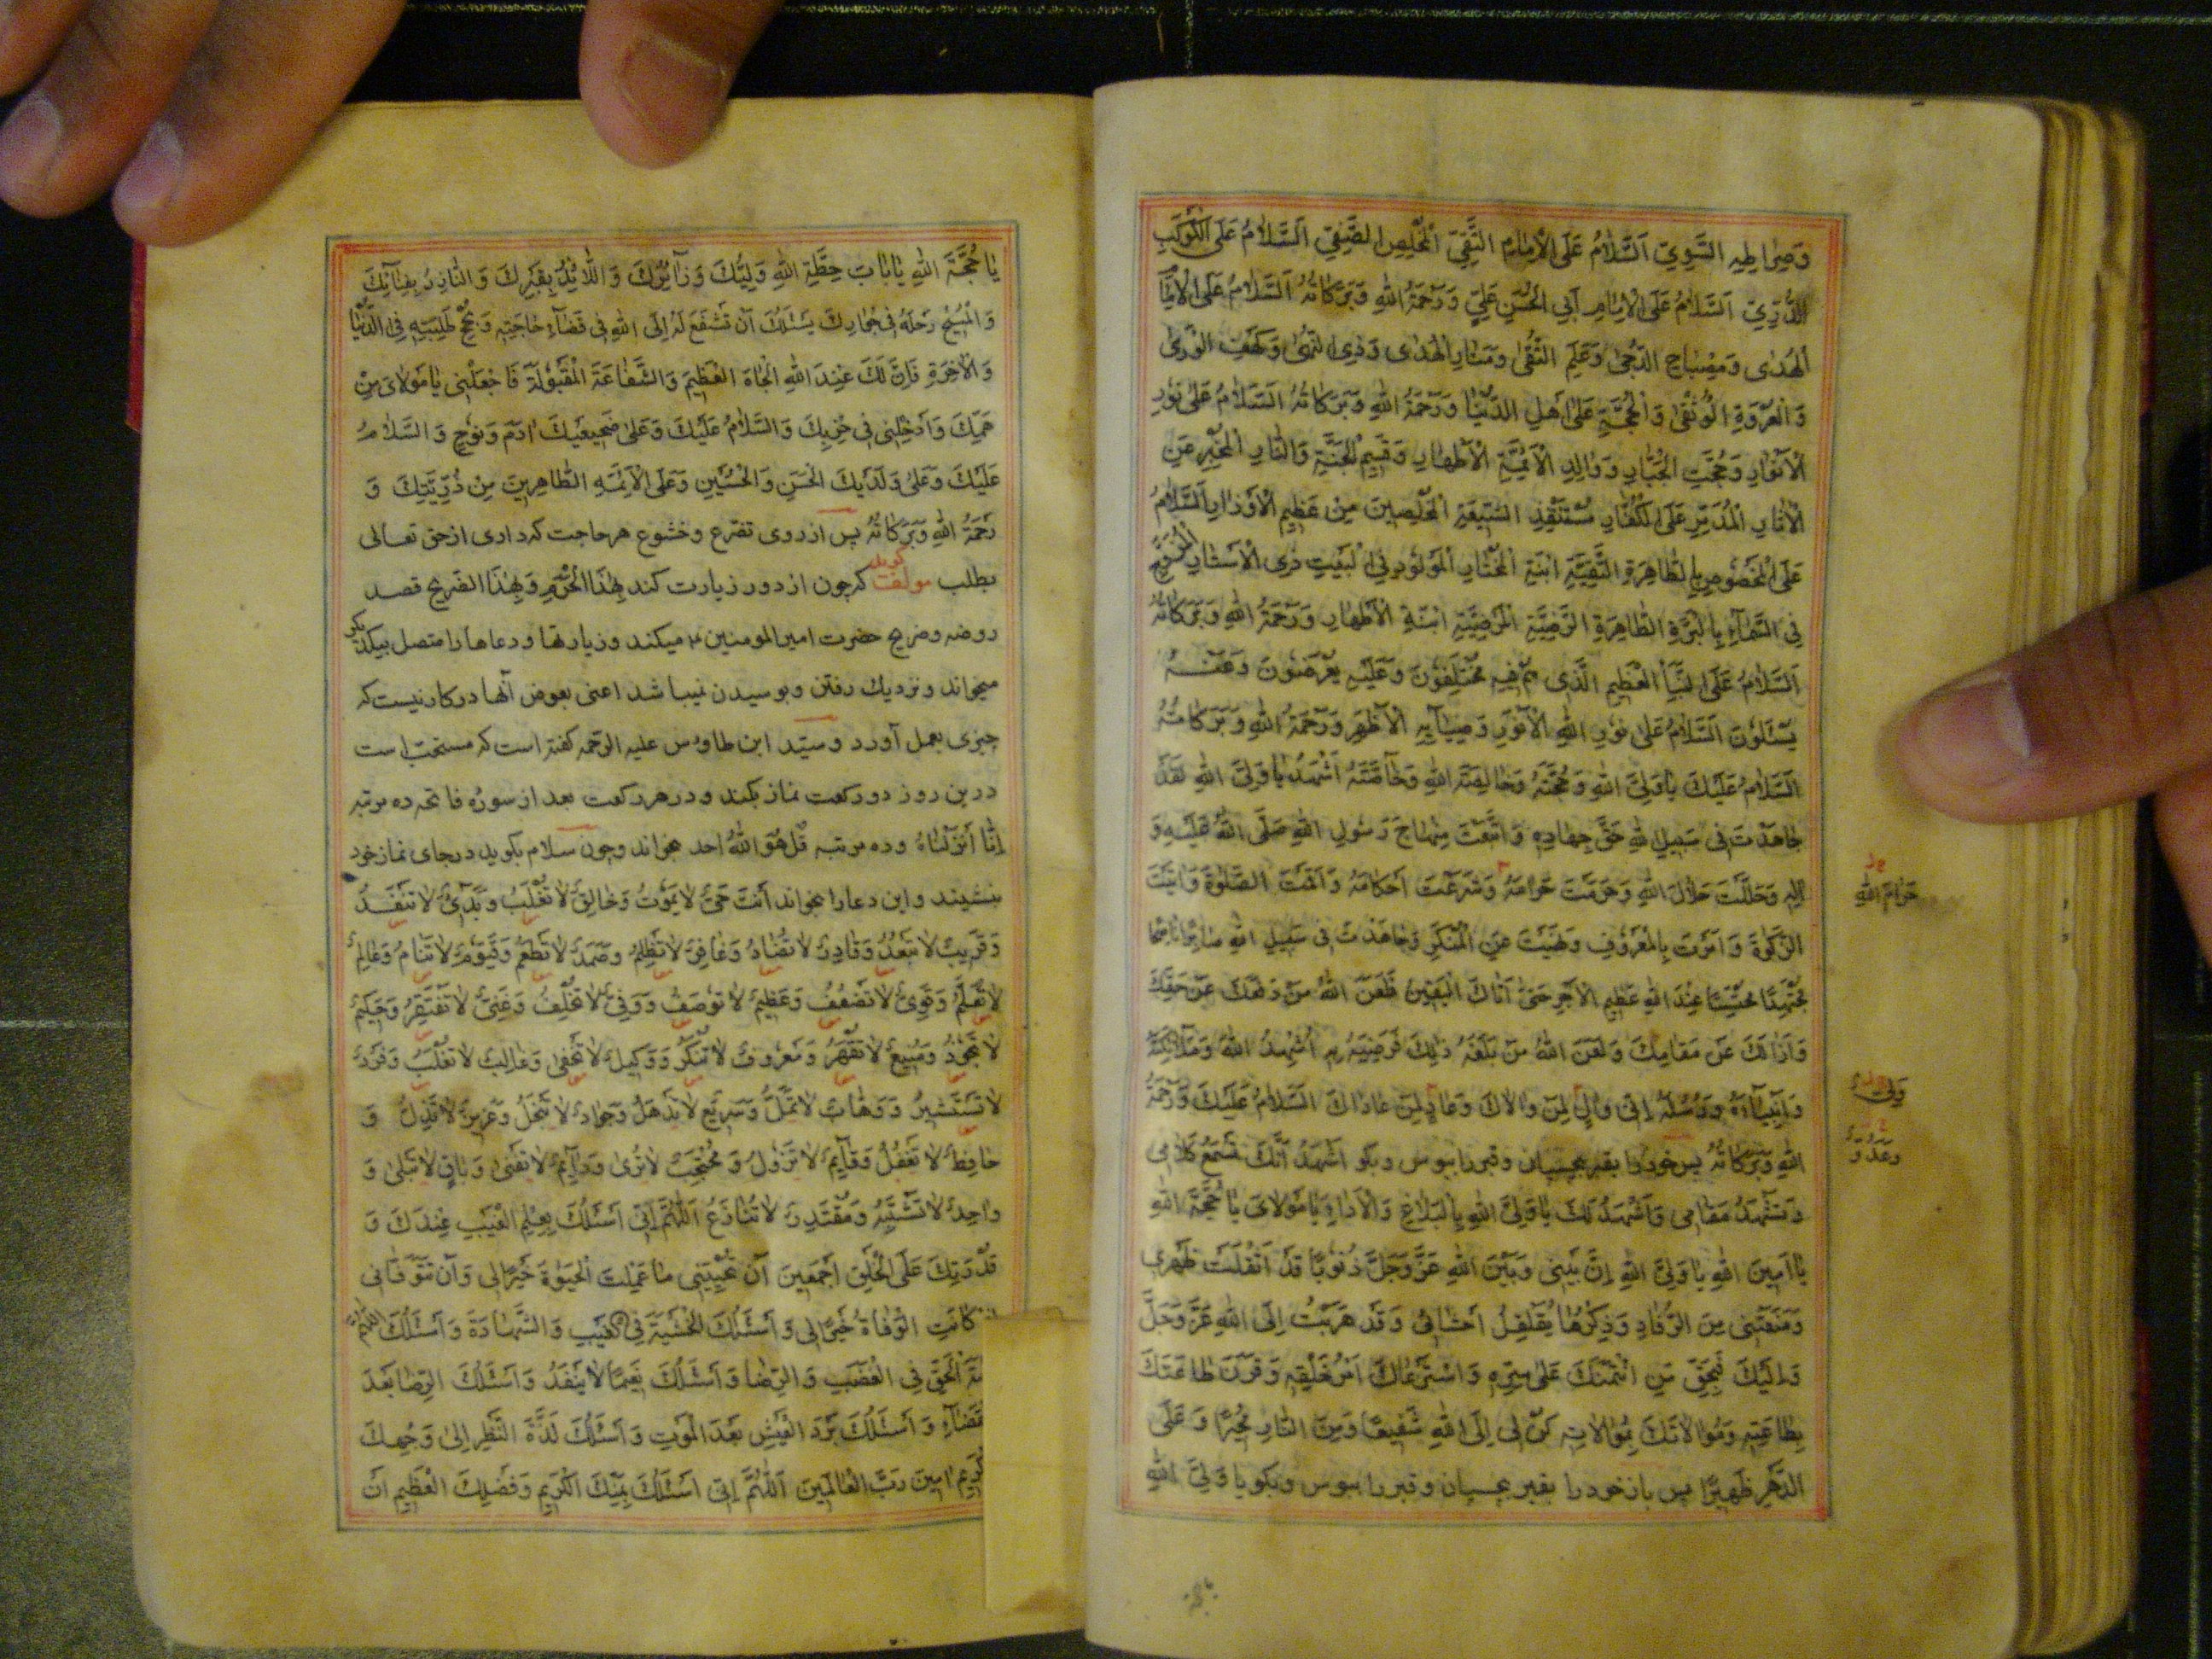 وَصِرَاطِهِ السَّوِيِّ اَلسَّلَامُ عَلَى الْاِمَامِ التَّقِيِّ الْمُخْلِصِ الصَّفِيِّ اَلسَّلَامُ عَلَى الْكَوْكَبِ
الدُّرِّيِّ اَلسَّلَامُ عَلَى الْاِمَامِ اَبِي الْحَسَنِ عَلِيٍّ وَرَحْمَةُ اللهِ وَبَرَكَاتُهُ اَلسَّلَامُ عَلَى الْاِمَامِ
الْهُدٰى وَمِصْبَاحِ الدُّجٰى وَعَلَمِ التُّقٰى وَمَنَارِ الْهُدٰى وَذِي النُّهٰى وَكَهْفِ الْوَرٰى
وَالْعُرْوَةِ الْوُثْقٰى وَالْحُجَّةِ عَلٰى اَهْلِ الدُّنْيَا وَرَحْمَةُ اللهِ وَبَرَكَاتُهُ اَلسَّلَامُ عَلٰى نُورِ
الْاَنْوَارِ وَحُجَّتِ الْجَبَّارِ وَوَالِدِ الْاَئِمَّةِ الْاَطْهَارِ وَقَسِيمِ الْجَنَّةِ وَالنَّارِ الْمُخْبِرِ عَنِ
الْاٰثَارِ الْمُدَمِّرِ عَلَى الْكُفَّارِ مُسْتَنْقِذِ الشِّيعَةِ الْمُخْلِصِينَ مِنْ عَظِيمِ الْاَوْزَارِ اَلسَّلَامُ
عَلَى الْمَخْصُوصِ بِالطَّاهِرَةِ التَّقِيَّةِ ابْنَةِ الْمُخْتَارِ الْمَوْلُودِ فِي الْبَيْتِ ذِي الْاَسْتَارِ الْمُزَوَّجِ
فِي السَّمَاءِ بِالْبَرَّةِ الطَّاهِرَةِ الرَّضِيَّةِ الْمَرْضِيَّةِ ابْنَةِ الْاَطْهَارِ وَرَحْمَةُ اللهِ وَبَرَكَاتُهُ
اَلسَّلَامُ عَلَى النَّبَاِ الْعَظِيمِ الَّذِي هُمْ فِيهِ مُخْتَلِفُونَ وَعَلَيْهِ يُعْرَضُونَ وَعَنْهُ
يُسْئَلُونَ اَلسَّلَامُ عَلٰى نُورِ اللهِ الْاَنْوَرِ وَضِيَائِهِ الْاَظْهَرِ وَرَحْمَةُ اللهِ وَبَرَكَاتُهُ
اَلسَّلَامُ عَلَيْكَ يَا وَلِيَّ اللهِ وَحُجَّتَهُ وَخَالِصَةَ اللهِ وَخَاصَّتَهُ اَشْهَدُ يَا وَلِيَّ اللهِ لَقَدْ
جَاهَدْتَ فِي سَبِيلِ اللهِ حَقَّ جِهَادِهِ وَاتَّبَعْتَ مِنْهَاجَ رَسُولِ اللهِ صَلَّى اللهُ عَلَيْهِ وَ
اٰلِهِ وَحَلَّلْتَ حَلَالَ اللهِ وَحَرَّمْتَ حَرَامَهُ وَشَرَعْتَ اَحْكَامَهُ وَاَقَمْتَ الصَّلٰوةَ وَاٰتَيْتَ
حَرَامَ اللهِ
الزَّكٰوةَ وَاَمَرْتَ بِالْمَعْرُوفِ وَنَهَيْتَ عَنِ الْمُنْكَرِ وَجَاهَدْتَ فِي سَبِيلِ اللهِ صَابِرًا نَاصِحًا
مُجْتَهِدًا مُحْتَسِبًا عِنْدَ اللهِ عَظِيمَ الْاَجْرِ حَتّٰى اَتَاكَ الْيَقِينُ فَلَعَنَ اللهُ مَنْ دَفَعَكَ عَنْ حَقِّكَ
وَاَزَالَكَ عَنْ مَقَامِكَ وَلَعَنَ اللهُ مَنْ بَلَغَهُ ذٰلِكَ فَرَضِيَ بِهِ اُشْهِدُ اللهَ وَمَلَائِكَتَهُ
وَاَنْبِيَاءَهُ وَرُسُلَهُ اِنِّي وَالٍ لِمَنْ وَالَاكَ وَعَادٍ لِمَنْ عَادَاكَ اَلسَّلَامُ عَلَيْكَ وَرَحْمَةُ
وَلِيٌّ
وَعَدُوٌّ
اللهِ وَبَرَكَاتُهُ پس خود را بقبر بچسبان وقبر را ببوس وبکو اَشْهَدُ اَنَّكَ تَسْمَعُ كَلَامِي
وَتَشْهَدُ مَقَامِي وَاَشْهَدُ لَكَ يَا وَلِيَّ اللهِ بِالْبَلَاغِ وَالْاَدَاءِ يَا مَوْلَايَ يَا حُجَّةَ اللهِ
يَا اَمِينَ اللهِ يَا وَلِيَّ اللهِ اِنَّ بَيْنِي وَبَيْنَ اللهِ عَزَّ وَجَلَّ ذُنُوبًا قَدْ اَثْقَلَتْ ظَهْرِي
وَمَنَعَتْنِي مِنَ الرُّقَادِ وَذِكْرُهَا يُقَلْقِلُ اَحْشَائِي وَقَدْ هَرَبْتُ اِلَى اللهِ عَزَّ وَجَلَّ
وَاِلَيْكَ فَبِحَقِّ مَنِ ائْتَمَنَكَ عَلٰى سِرِّهِ وَاسْتَرْعَاكَ اَمْرَ خَلْقِهِ وَقَرَنَ طَاعَتَكَ
بِطَاعَتِهِ وَمُوَالَاتَكَ بِمُوَالَاتِهِ كُنْ لِي اِلَى اللهِ شَفِيعًا وَمِنَ النَّارِ مُجِيرًا وَعَلَى
الدَّهْرِ ظَهِيرًا پس باز خود را بقبر بچسبان وقبر را ببوس وبکو يَا وَلِيَّ اللهِ
يَا حُجَّةَ اللهِ يَا بَابَ حِطَّةِ اللهِ وَلِيُّكَ وَزَائِرُكَ وَاللَّائِذُ بِقَبْرِكَ وَالنَّازِلُ بِفِنَائِكَ
وَالْمُنِيخُ رَحْلَهُ فِي جِوَارِكَ يَسْئَلُكَ اَنْ تَشْفَعَ لَهُ اِلَى اللهِ فِي قَضَاءِ حَاجَتِهِ وَنُجْحِ طَلِبَتِهِ فِي الدُّنْيَا
وَالْاٰخِرَةِ فَاِنَّ لَكَ عِنْدَ اللهِ الْجَاهَ الْعَظِيمَ وَالشَّفَاعَةَ الْمَقْبُولَةَ فَاجْعَلْنِي يَا مَوْلَايَ مِنْ
هَمِّكَ وَاَدْخِلْنِي فِي حِزْبِكَ وَالسَّلَامُ عَلَيْكَ وَعَلٰى ضَجِيعَيْكَ اٰدَمَ وَنُوحٍ وَالسَّلَامُ
عَلَيْكَ وَعَلٰى وَلَدَيْكَ الْحَسَنِ وَالْحُسَيْنِ وَعَلَى الْاَئِمَّةِ الطَّاهِرِينَ مِنْ ذُرِّيَّتِكَ وَ
رَحْمَةُ اللهِ وَبَرَكَاتُهُ پس از روی تضرع وخشوع هر حاجت که داری از حق تعالی
بطلب مولف کوید که چون از دور زیارت کند بِهٰذَا الْحَرَمِ وَبِهٰذَا الضَّرِيحِ قصد
روضه وضریح حضرت امیر المومنین ع میکند وزیارتها ودعاها را متصل بیکدیکر
میخواند ونزدیك رفتن وبوسیدن نمیباشد اعنی بعوض آنها در کار نیست که
چیزی بعمل آورد وسید ابن طاوس علیه الرحمه کفته است که مستحب است
در این روز دو رکعت نماز بکند ودر هر رکعت بعد از سوره فاتحه ده مرتبه
اِنَّا اَنْزَلْنَاهُ وده مرتبه قُلْ هُوَ اللهُ احد بخواند وچون سلام بکوید در جای نماز خود
بنشیند واین دعا را بخواند اَنْتَ حَيٌّ لَا يَمُوتُ وَخَالِقٌ لَا تُغْلَبُ وَبَدِيٌ لَا تَنْفَدُ
وَقَرِيبٌ لَا تَبْعُدُ وَقَادِرٌ لَا تُضَادُّ وَغَافِرٌ لَا تَظْلِمُ وَصَمَدٌ لَا تَطْعَمُ وَقَيُّومٌ لَا تَنَامُ وَعَالِمٌ
لَا تُعَلَّمُ وَقَوِيٌّ لَا تَضْعُفُ وَعَظِيمٌ لَا تُوصَفُ وَوَفِيٌّ لَا تُخْلِفُ وَغَنِيٌّ لَا تَفْتَقِرُ وَحَكِيمٌ
لَا تَجُورُ وَمَنِيعٌ لَا تُقْهَرُ وَمَعْرُوفٌ لَا تُنْكَرُ وَوَكِيلٌ لَا تَخْفٰى وَغَالِبٌ لَا تُغْلَبُ وَفَرْدٌ
لَا تَسْتَشِيرُ وَوَهَّابٌ لَا تَمَلُّ وَسَرِيعٌ لَا تَذْهَلُ وَجَوَادٌ لَا تَبْخَلُ وَعَزِيزٌ لَا تَذِلُّ وَ
حَافِظٌ لَا تَغْفُلُ وَقَائِمٌ لَا تَزُولُ وَمُحْتَجِبٌ لَا تُرٰى وَدَائِمٌ لَا تَفْنٰى وَبَاقٍ لَا تَبْلٰى وَ
وَاحِدٌ لَا تُشْتَبَهُ وَمُقْتَدِرٌ لَا تُنَازَعُ اَللّٰهُمَّ اِنِّي اَسْئَلُكَ بِعِلْمِ الْغَيْبِ عِنْدَكَ وَ
قُدْرَتِكَ عَلَى الْخَلْقِ اَجْمَعِينَ اَنْ تُحْيِيَنِي مَا عَلِمْتَ الْحَيٰوةَ خَيْرًا لِي وَاَنْ تَتَوَفَّانِي
كَانَتِ الْوَفَاةُ خَيْرًا لِي وَاَسْئَلُكَ الْخَشْيَةَ فِي الْغَيْبِ وَالشَّهَادَةِ وَاَسْئَلُكَ اللّٰهُمَّ
الْحَقِّ فِي الْغَضَبِ وَالرِّضَا وَاَسْئَلُكَ نَعِيمًا لَا يَنْفَدُ وَاَسْئَلُكَ الرِّضَا بَعْدَ
قَضَاءِ وَاَسْئَلُكَ بَرْدَ الْعَيْشِ بَعْدَ الْمَوْتِ وَاَسْئَلُكَ لَذَّةَ النَّظَرِ اِلٰى وَجْهِكَ
اٰمِينَ رَبَّ الْعَالَمِينَ اَللّٰهُمَّ اِنِّي اَسْئَلُكَ بِمَنِّكَ الْكَرِيمِ وَفَضْلِكَ الْعَظِيمِ اَنْ